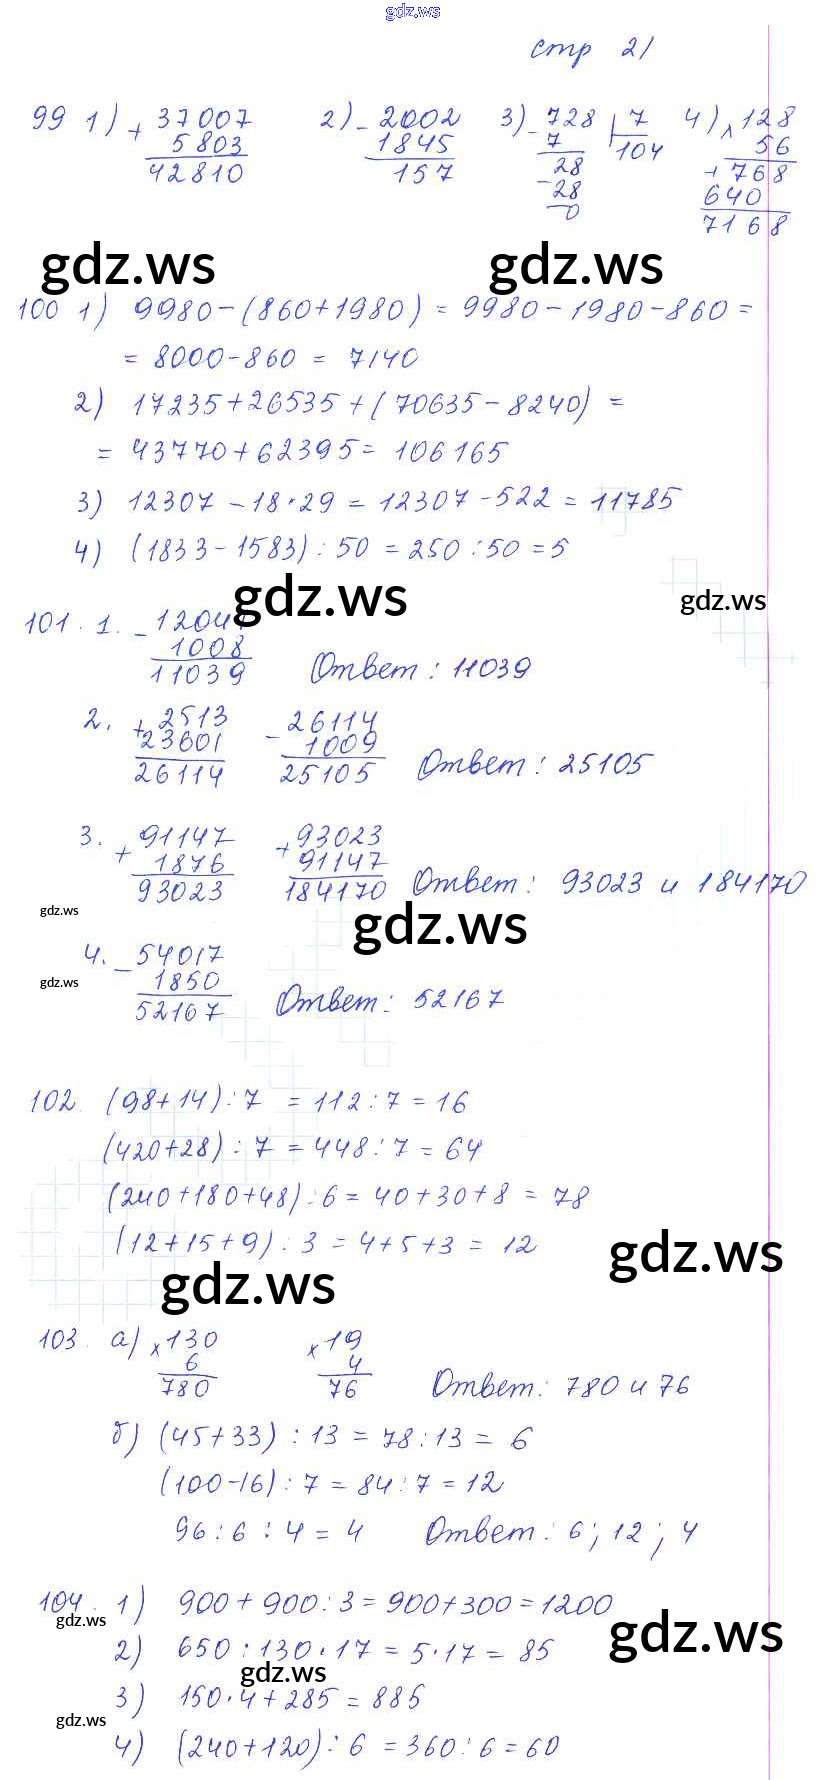 gdz.ws
стр 21
99 1) + 37007 2) - 2002 3) - 728 | 7 4) × 128
5803 1845 7 104 56
42810 157 28 + 768
- 28 640
0 7168
gdz.ws gdz.ws
100 1) 9980-(860+1980) = 9980-1980-860 =
= 8000-860 = 7140
2) 17235+26535+(70635-8240) =
= 43770+62395= 106165
3) 12307 - 18·29 = 12307-522 = 11785
4) (1833-1583):50 = 250:50 =5
gdz.ws gdz.ws
101. 1. - 12047
1008
11039 Ответ: 11039
2. + 2513 - 26114
23601 1009
26114 25105 Ответ: 25105
3. + 91147 + 93023
1876 91147
93023 184170 Ответ: 93023 и 184170
gdz.ws gdz.ws
4. - 54017
gdz.ws 1850
52167 Ответ: 52167
102. (98+14):7 = 112:7 = 16
(420+28):7 = 448:7 = 64
(240+180+48):6 = 40+30+8 = 78
(12+15+9):3 = 4+5+3 = 12
gdz.ws gdz.ws
103. а) × 130 × 19
6 4
780 76 Ответ: 780 и 76
б) (45+33):13 = 78:13 = 6
(100-16):7 = 84:7 = 12
96:6:4 = 4 Ответ: 6; 12; 4
104. 1) 900+900:3 = 900+300 = 1200
gdz.ws gdz.ws
2) 650:130·17 = 5·17 = 85
gdz.ws
3) 150·4+285 = 885
gdz.ws
4) (240+120):6 = 360:6 = 60